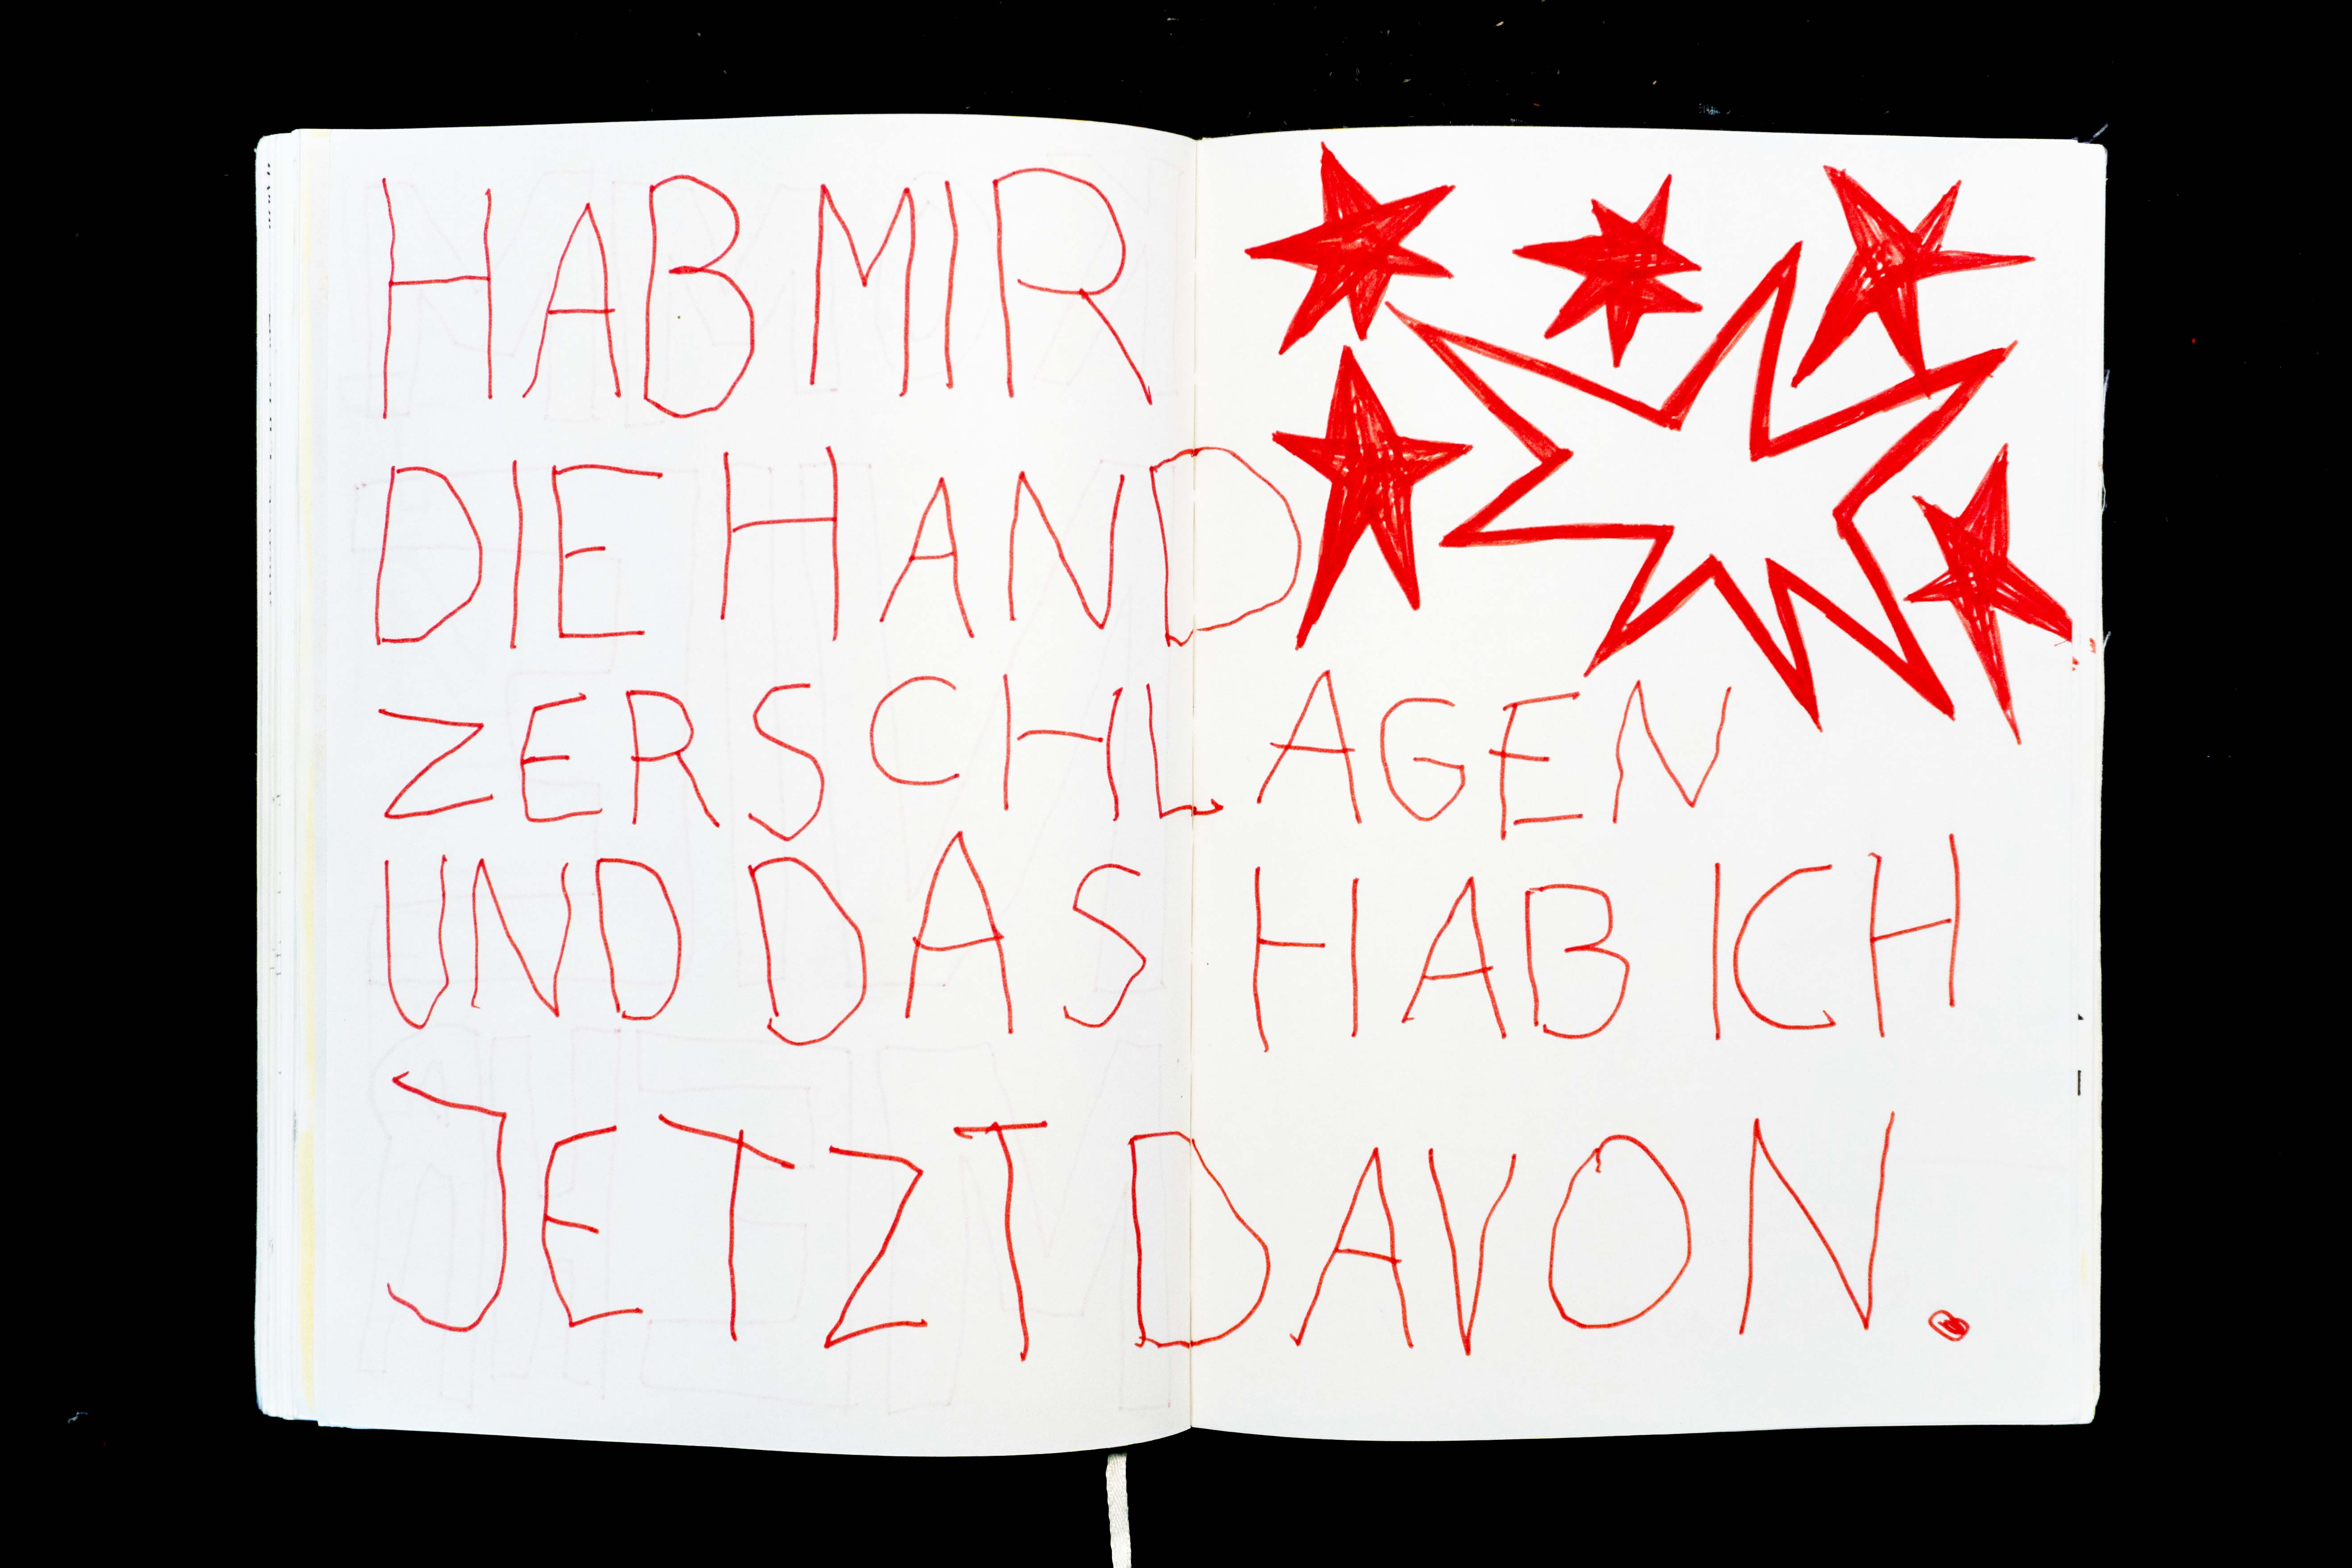 HAB MIR
DIE HAND
ZERSCHLAGEN
UND DAS HAB ICH
JETZT DAVON.